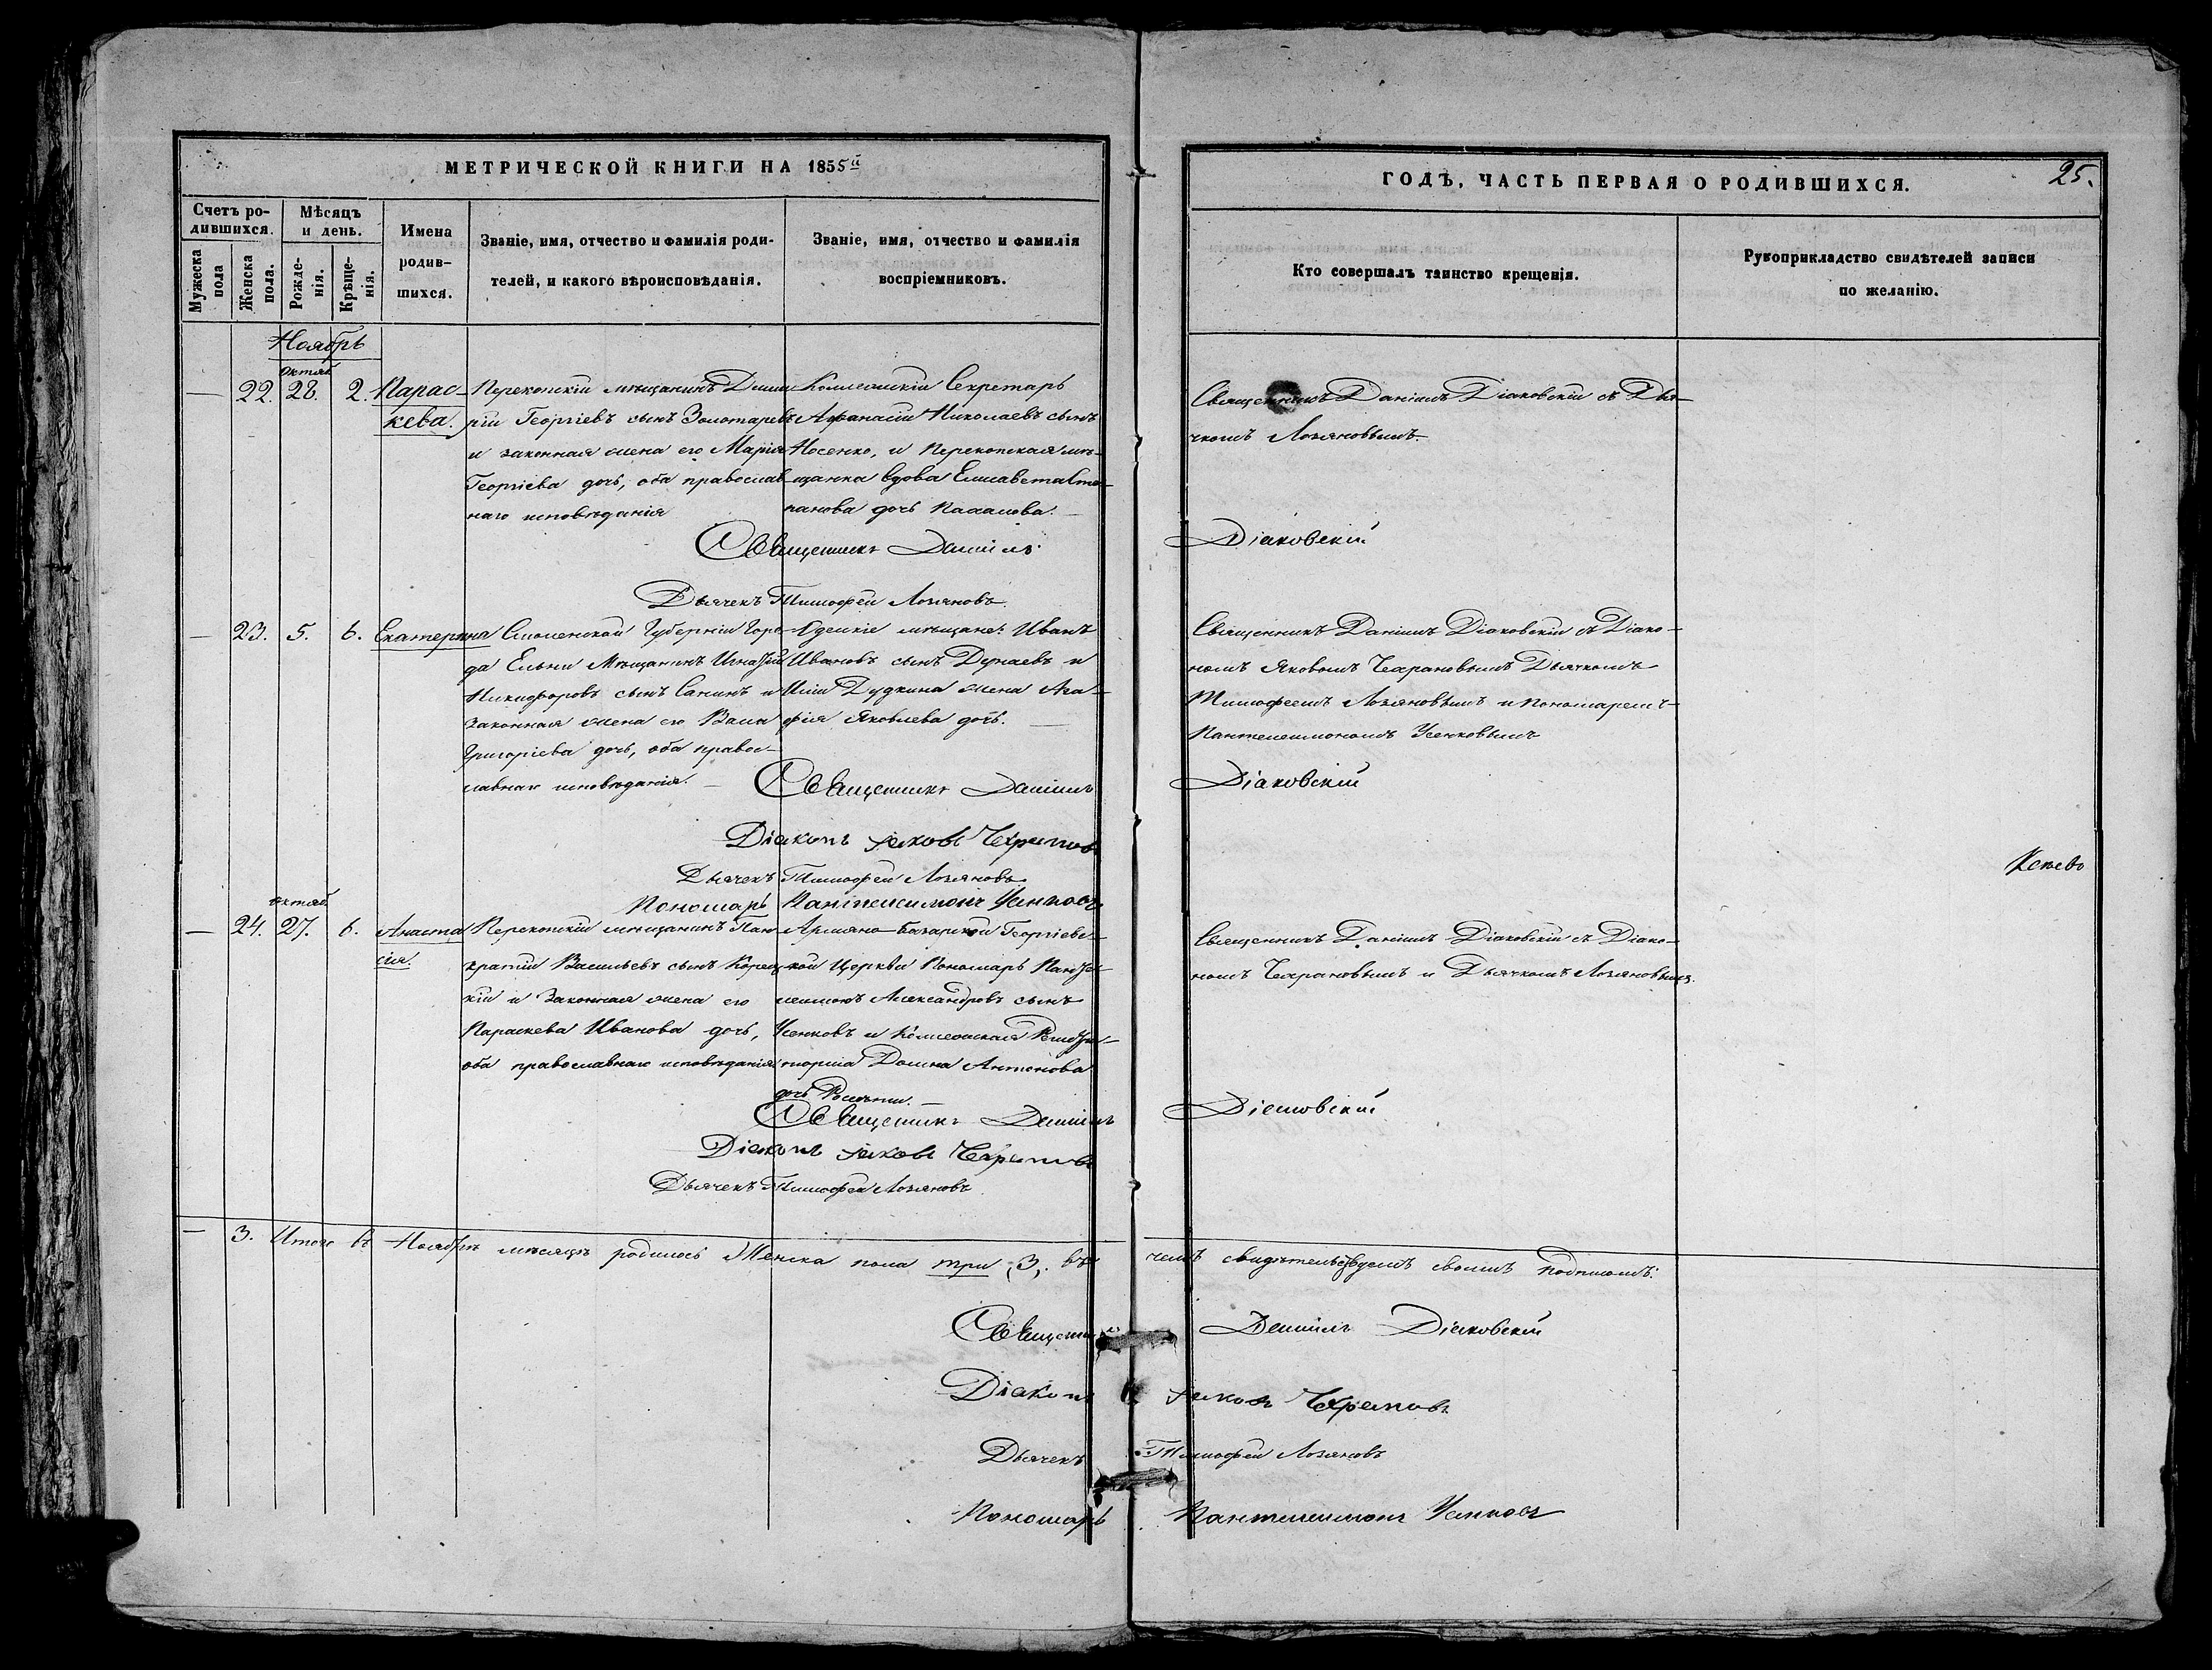 МЕТРИЧЕСКОЙ КНИГИ НА 1855й
ГОДЪ, ЧАСТЬ ПЕРВАЯ О РОДИВШИХСЯ.
25.
Счетъ ро-
дившихся.
Мужеска пола
Женска пола.
Мѣсяцъ
и день.
Рожде-
нія.
Крѣще-
нія.
Имена
родив-
шихся.
Званіе, имя, отчество и фамилія роди-
телей, и какого вѣроисповѣданія.
Званіе, имя, отчество и фамилія
воспріемниковъ.
Кто совершалъ таинство крещенія.
Рукоприкладство свидѣтелей записи
по желанію.
Ноябрь
— 22. Октяб 28. 2. Парас-
кева.
Перекопскій мѣщанинъ Дими
рій Георгіевъ сынъ Золотаревъ
и законная жена его Марія
Георгіева дочь, оба православ
наго исповѣданія
Коллежскій Секретарь
Афанасій Николаевъ сынъ
Носенко, и Перекопская мѣ-
щанка вдова Елисавета Сте-
панова дочь
Священникъ Даніилъ Діаковскій съ Дья-
чкомъ Лозяновымъ.
Священникъ Даніилъ Діаковскій
Дьячекъ Тимофей Лозяновъ.
— 23. 5. 6. Екатерина
Смоленской Губерніи Горо-
да Ельни Мѣщанинъ Игнатій
Никифоровъ сынъ Санинъ и
Законная жена его Васса
Григоріева дочь, оба правос-
лавнаго исповѣданія. —
мѣщане: Иванъ
Ивановъ сынъ Дунаевъ и
Дудкина жена Ага-
фія Яковлева дочь. —
Священникъ Даніилъ Діаковскій съ Діако-
номъ Яковомъ Чехрановымъ Дьячкомъ
Тимофеемъ Лозяновымъ и Пономаремъ
Пантелеимономъ Усенковымъ
Священникъ Даніилъ Діаковскій
Діаконъ Іаковъ Чехрановъ
Дьячекъ Тимофей Лозяновъ
Пономарь Пантелеимонъ Усенковъ
— 24. октяб. 27. 6. Анаста
сія.
Перекопскій мѣщанинъ Пан-
кратій Васильевъ сынъ Корец
кій и Законная жена его
Параскева Иванова дочь,
оба православнаго исповѣданія
Армяно-Базарской Георгіевс-
кой Церкви Пономарь Панте-
леимонъ Александровъ сынъ
Усенковъ и Коллежская Регистра-
торша Домна Антонова
дочь
Священникъ Даніилъ Діаковскій съ Діако-
номъ Чехрановымъ и Дьячкомъ Лозяновымъ.
Священникъ Даніилъ Діаковскій
Діаконъ Іаковъ Чехрановъ
Дьячекъ Тимофей Лозяновъ
— 3. Итого въ Ноябрѣ мѣсяцѣ родилось Женска пола три, 3, въ чемъ свидѣтельствуемъ своимъ подписомъ:
Священникъ Даніилъ Діаковскій
Діаконъ Іаковъ Чехрановъ
Дьячекъ Тимофей Лозяновъ
Пономарь Пантелеимонъ Усенковъ